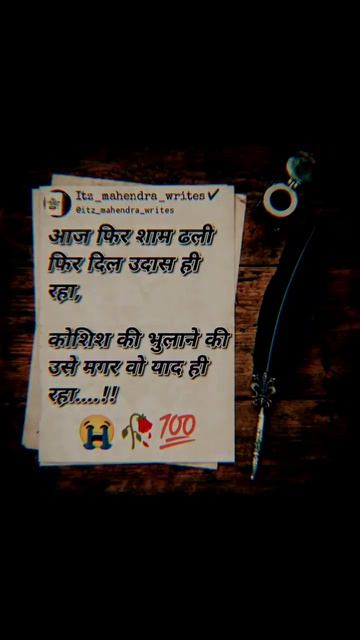 Itz_mahendra_writes✔
@itz_mahendra_writes
आज फिर शाम ढली
फिर दिल उदास ही
रहा,
कोशिश की भुलाने की
उसे मगर वो याद ही
रहा....!!
😭🥀💯